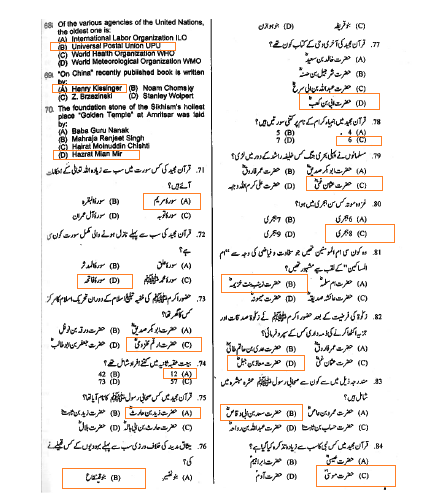 68. Of the various agencies of the United Nations,
the oldest one is:
(A) International Labor Organization ILO
(B) Universal Postal Union UPU
(C) World Health Organization WHO
(D) World Meteorological Organization WMO
69. "On China" recently published book is written
by:
(A) Henry Kissinger (B) Noam Chomsky
(C) Z. Brzezinski (D) Stanley Wolpert
70. The foundation stone of the Sikhism's holiest
place "Golden Temple" at Amritsar was laid
by:
(A) Baba Guru Nanak
(B) Mahraja Renjeet Singh
(C) Hazrat Moinuddin Chishti
(D) Hazrat Mian Mir
71. قرآن مجید کی کس سورت میں سب سے زیادہ اللہ تعالیٰ کے احکامات
آئے ہیں؟
(A) سورۃ مریم (B) سورۃ البقرہ
(C) سورۃ توبہ (D) سورۃ آل عمران
72. قرآن مجید کی سب سے پہلے نازل ہونے والی مکمل سورت کون سی
ہے؟
(A) سورۃ علق (B) سورۃ المدثر
(C) سورۃ محمد ﷺ (D) سورۃ فاتحہ
73. حضور اکرم ﷺ کی خفیہ تبلیغ اسلام کے دوران تحریک اسلام کا مرکز
کس کا گھر تھا؟
(A) حضرت ابوبکر صدیقؓ (B) حضرت ورقہ بن نوفل
(C) حضرت ارقم مخزومیؓ (D) حضرت جعفر بن ابو طالبؓ
74. بیعت عقبہ ثانیہ میں کتنے افراد شامل تھے؟
(A) 12 (B) 42
(C) 57 (D) 73
75. قرآن مجید میں کس صحابی رسول ﷺ کا نام آیا تھا؟
(A) حضرت زید بن حارثؓ (B) حضرت زید بن ثابتؓ
(C) حضرت بلالؓ (D) حضرت
76. میثاق مدینہ کی خلاف ورزی سب سے پہلے یہودیوں کے کس قبیلے نے
کی؟
(A) بنو نضیر (B) بنو قینقاع
(C) بنو قریظہ (D) بنو ہوازن
77. قرآن مجید کی آخری وحی کے کتاب کون تھے؟
(A) حضرت خالد بن سعیدؓ
(B) حضرت شرجیل بن حسنہؓ
(C) حضرت عبداللہ بن ابی سرحؓ
(D) حضرت ابی بن کعبؓ
78. قرآن مجید میں انبیاء کرام کے نام پر کتنی سورتیں ہیں؟
(A) 4 (B) 5
(C) 6 (D) 7
79. مسلمانوں نے پہلی بحری جنگ کس خلیفہ راشد کے دور میں لڑی؟
(A) حضرت ابوبکر صدیقؓ (B) حضرت عمر فاروقؓ
(C) حضرت عثمان غنیؓ (D) حضرت علی کرم اللہ وجہہ
80. غزوہ موتہ کس سن ہجری میں ہوا؟
(A) 6 ہجری (B) 7 ہجری
(C) 8 ہجری (D) 9 ہجری
81. وہ کون سی ام المومنین تھیں جو سخاوت و فیاضی کی وجہ سے "ام
المساکین" کے لقب سے مشہور تھیں؟
(A) حضرت ام سلمہؓ (B) حضرت زینب بنت خزیمہؓ
(C) حضرت عائشہ صدیقہؓ (D) حضرت میمونہ
82. زکوٰۃ کی فرضیت کے بعد حضور اکرم ﷺ نے زکوٰۃ، صدقات اور
جزیہ اکٹھا کرنے کی ذمہ داری کس کے سپرد فرمائی؟
(A) حضرت عمر فاروقؓ (B) حضرت عدی بن حاتم طائیؓ
(C) حضرت عثمان غنیؓ (D) حضرت معاذ بن جبلؓ
83. مندرجہ ذیل میں سے کون سے صحابی رسول ﷺ عشرہ مبشرہ میں
شامل ہیں؟
(A) حضرت عمرو بن عاصؓ (B) حضرت سعد بن ابی وقاصؓ
(C) حضرت حسان بن ثابتؓ (D) حضرت عبداللہ بن رواحہؓ
84. قرآن مجید میں کس نبی کا سب سے زیادہ تذکرہ کیا گیا ہے؟
(A) حضرت عیسیٰؑ (B) حضرت ابراہیمؑ
(C) حضرت موسیٰؑ (D) حضرت آدمؑ